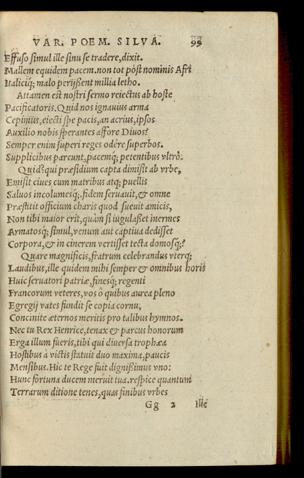 VAR. POEM. SILVA. 99
Effuso simul ille sinu se tradere, dixit.
Mallem equidem pacem. non tot pòst nominis Afri
Italiciq́; malo perijssent millia letho.
Attamen est nostri sermo reiectus ab hoste
Pacificatoris. Quid nos ignauius arma
Cepimus, eiecti spe pacis, an acrius, ipsos
Auxilio nobis sperantes affore Diuos?
Semper enim superi reges odêre superbos.
Supplicibus parcunt, pacemq́; petentibus vltrò.
Quid? qui præsidium capta dimisit ab vrbe,
Emisit ciues cum matribus atq; puellis
Saluos incolumesq́;, fidem seruauit, & omne
Præstitit officium charis quod sueuit amicis,
Non tibi maior erit, quàm si iugulasset inermes
Armatosq́; simul, venum aut captiua dedisset
Corpora, & in cinerem vertisset testa domosq́;?
Quare magnificis, fratrum celebrandus vterq;
Laudibus, ille quidem mihi semper & omnibus horis
Huic seruatori patriæ, finesq́; regenti
Francorum veteres, vos ô quibus aurea pleno
Egregij vates fundit se copia cornu,
Concinite æternos meritis pro talibus hymnos.
Nec tu Rex Henrice, tenax & parcus honorum
Erga illum fueris, tibi qui diuersa trophæa
Hostibus à victis statuit duo maxima, paucis
Mensibus. Hic te Rege fuit dignissimus vno:
Hunc fortuna ducem meruit tua. respice quantum
Terrarum ditione tenes, quas finibus vrbes
Gg 2 Ille